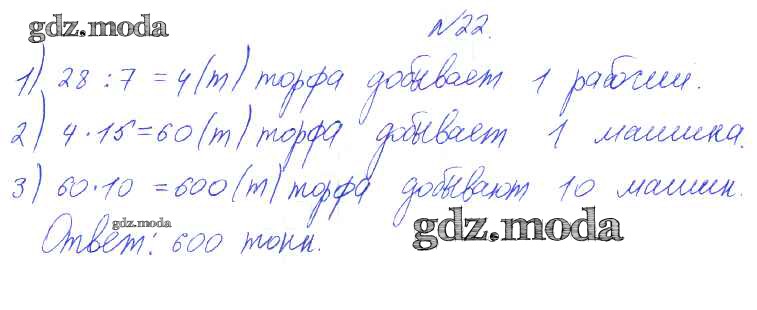 gdz.moda
№22.
1) 28 : 7 = 4 (т) торфа добывает 1 рабочий.
2) 4 · 15 = 60 (т) торфа добывает 1 машина.
3) 60 · 10 = 600 (т) торфа добывают 10 машин.
gdz.moda
Ответ: 600 тонн.
gdz.moda